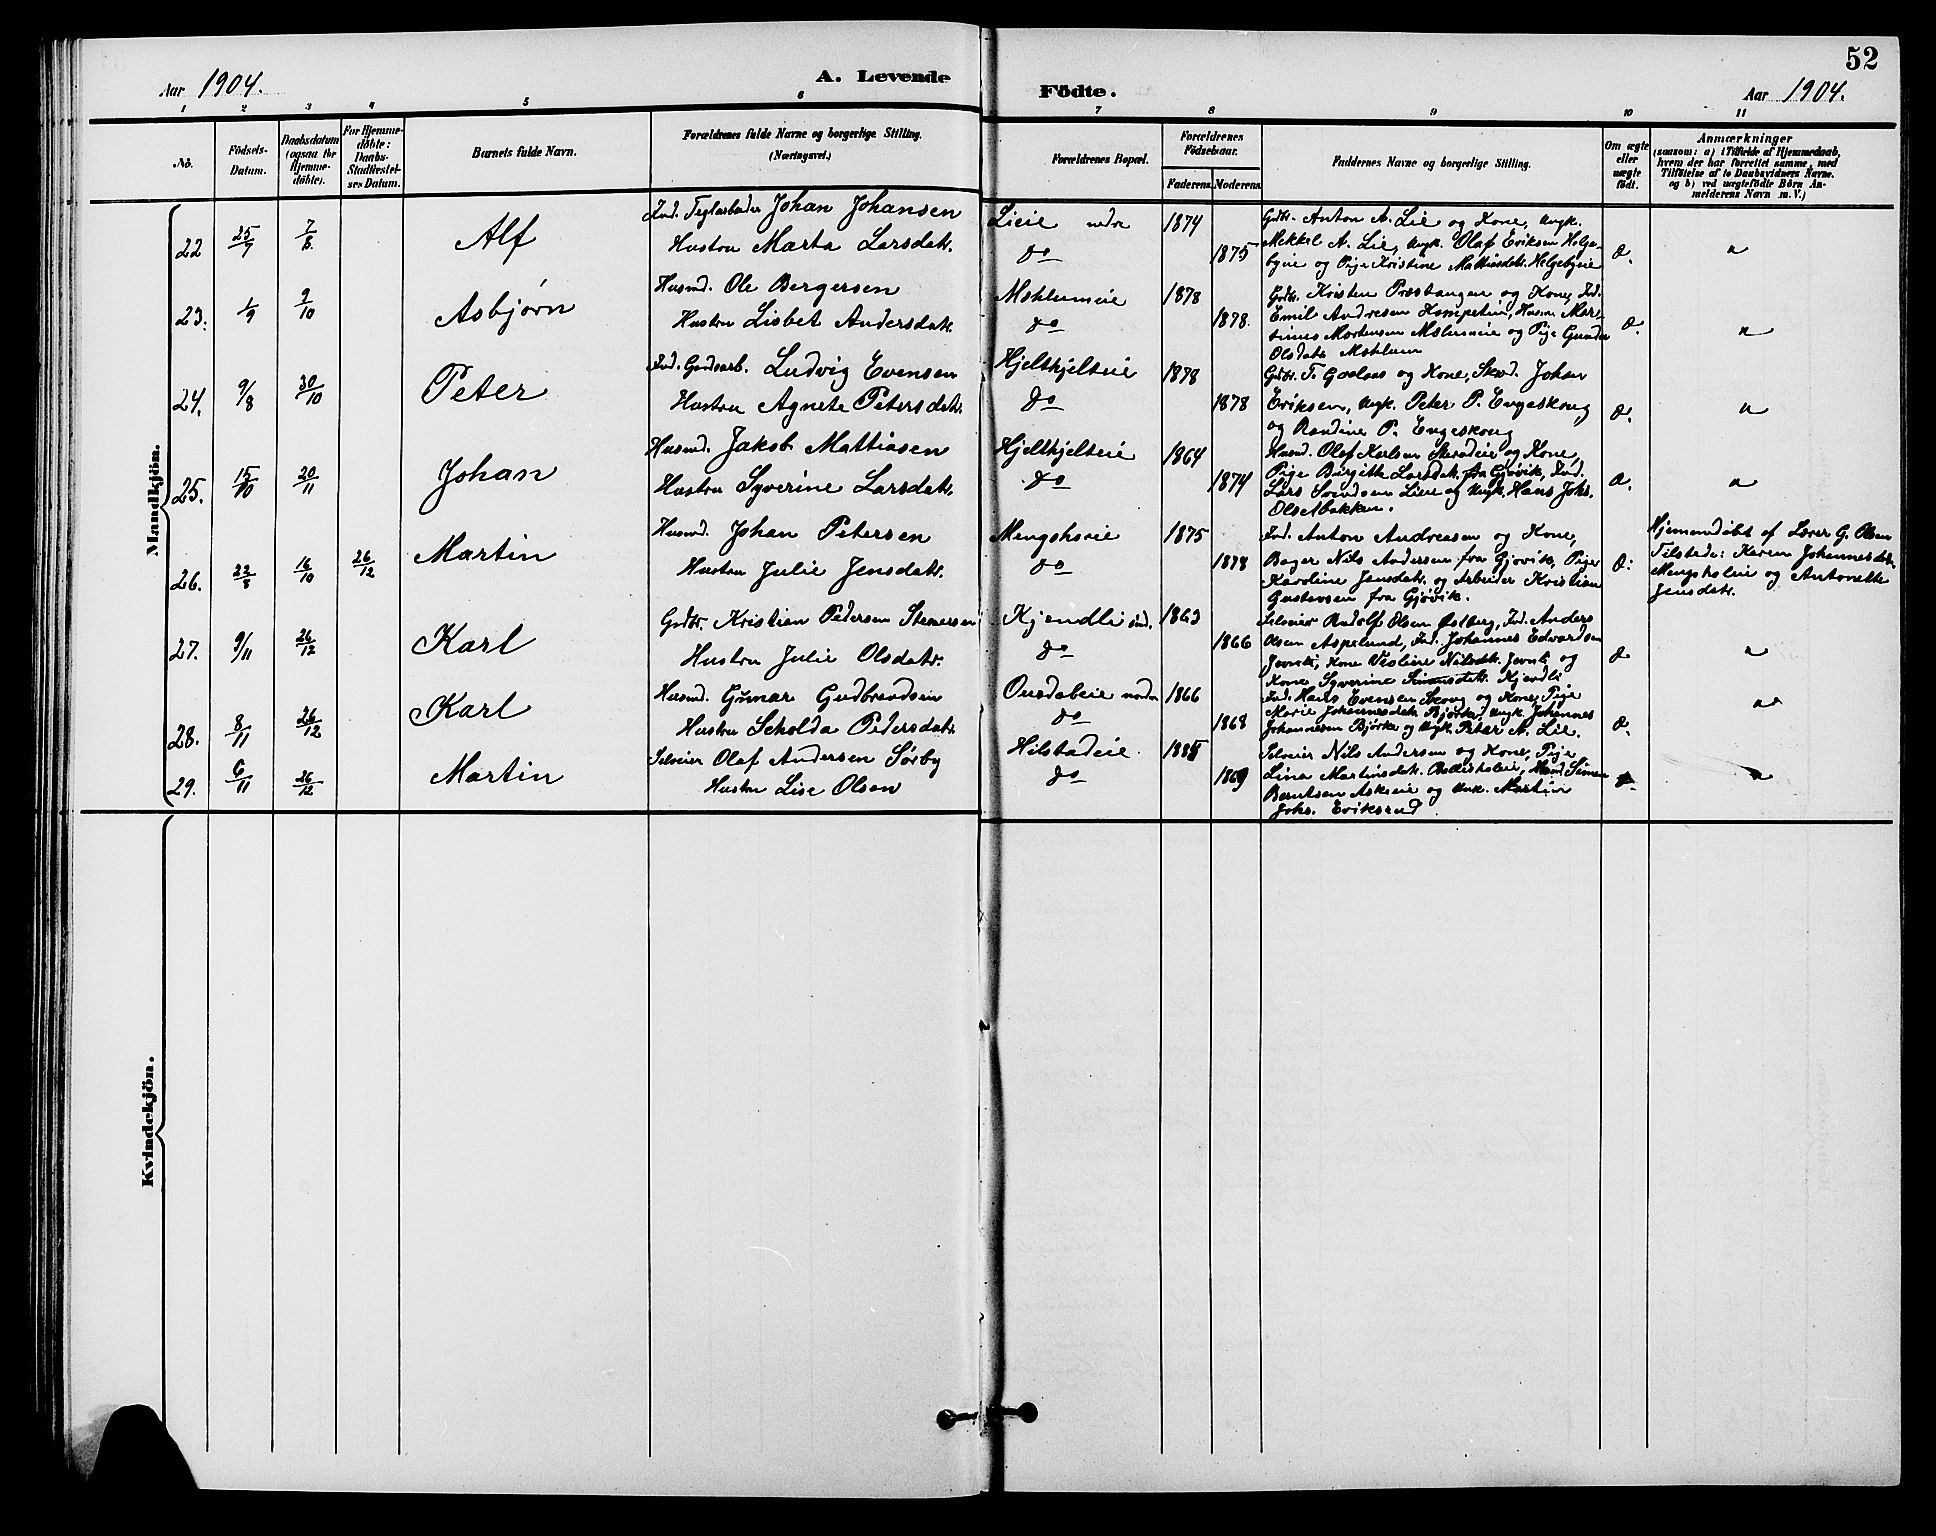 52
Aar 1904.
A. Levende
Födte.
Aar 1904.
1 2 3 4 5 6 7 8 9 10 11
No.
Födsels-
Datum.
Daabsdatum
(ogsaa for
Hjemme-
döbte).
For Hjemme-
döbte:
Daabs-
Stadfæstel-
ses Datum.
Barnets fulde Navn.
Forældrenes fulde Navne og borgerlige Stilling.
(Næringsvei.)
Forældrenes Bopæl.
Forældrenes
Födselsaar.
Faderens.
Moderens.
Faddernes Navne og borgerlige Stilling.
Om ægte
eller
uægte
födt.
Anmærkninger
(saasom: a) i Tilfælde af Hjemmedaab,
hvem der har forrettet samme, med
Tilföielse af to Daabsvidners Navne.
og b) ved uægtefödte Börn An-
melderens Navn m. V.)
Mandkjön.
22 25/7 7/8 Alf
Ind. Teglarbeider Johan Johansen
Hustru Marta Larsdatr.
Lieie nedre 1874
do 1875
Gdbr. Anton A. Lie og Kone, Ungk.
Mekkel A. Lie, Ungk. Olaf Eriksen Helge-
byeie og Pige Kristine Mattiasdatr. Helgebyeie
Æ. "
23. 1/9 9/10 Asbjørn
Husmd. Ole Bergersen
Hustru Lisbet Andersdatr.
Mæhlumeie 1878
do 1878.
Gdbr. Kristen Præstangen og Kone, Ind.
Emil Andresen Hompetin, Husm. Mar-
tinus Mortensen Mælumeie og Pige Gunda
Olsdatr. Mæhlum
Æ. "
24. 9/8 30/10 Peter
Ind. Gaardsarb. Ludvig Evensen
Hustru Agnete Petersdatr.
Hjeltkjelteie 1878
do 1878
Gdbr. T. Gaalaas og Kone, Skrd. Johan
Eriksen, Ungk. Peter P. Engeskoug
og Randine P. Engeskoug
Æ. "
25. 15/10 20/11 Johan
Husmd. Jakob Mattiasen
Hustru Syverine Larsdatr.
Hjeltkjelteie 1864
do 1874
Husmd. Olaf Karlsen og Kone,
Pige Birgitte Larsdatr. fra Gjøvik, Ind.
Lars Svendsen Lieie og Ungk. Hans Johs.
Olsetbakken.
Æ. "
26. 22/8 16/10 26/12 Martin
Husmd. Johan Petersen
Hustru Julie Jensdatr.
Mengsholeie 1875
do 1878
Ind. Anton Andreasen og Kone,
Bager Nils Andersen fra Gjøvik, Pige
Karoline Jensdatr. og Arbeider Kristian
Gustavsen fra Gjøvik.
Æ.
Hjemmedøbt af Lærer G. Olsen
Tilstede: Karen Johannesdatr.
Mengsholeie og Antonette
Jensdatr.
27. 9/11 26/12 Karl
Gdbr. Kristian Pedersen Stenersen
Hustru Julie Olsdatr.
Kjendli 1863
do 1866
Selveier Rudolf Olsen Østberg, Ind. Anders
Olsen Aspelund, Ind. Johannes Edvardsen
Jevnli, Kone Vesleie Nilsdatr. Jevnli og
Kone Syverine Simensdatr. Kjendli
Æ "
28. 8/11 26/12 Karl
Husmd. Gunar Gudbrandsen
Hustru Seholda Pedersdatr.
Ousdaleie nordre 1866
do 1868
Ind. Hans Evensen Skoug og Kone, Pige
Marie Johannesdatr. Bjørke, Ungk. Johannes
Johannesen Bjørke og Ungk. Peter A. Lie.
Æ. "
29. 6/11 26/12 Martin
Selveier Olaf Andersen Sørby
Hustru Lise Olsen
Hilstadeie
do 1869
Selveier Nils Andersen og Kone, Pige
Lina Martinsdatr. Ballisholeie, Husmd. Simen
Berntsen Askeie og Ungk. Martin
Johs. Eriksrud
Æ. "
Kvindekjön.